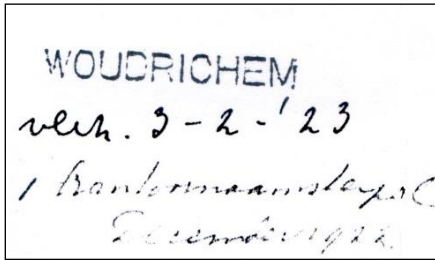 WOUDRICHEM
verz. 3-2-'23
1 kantoornaamstempel C
December 1922